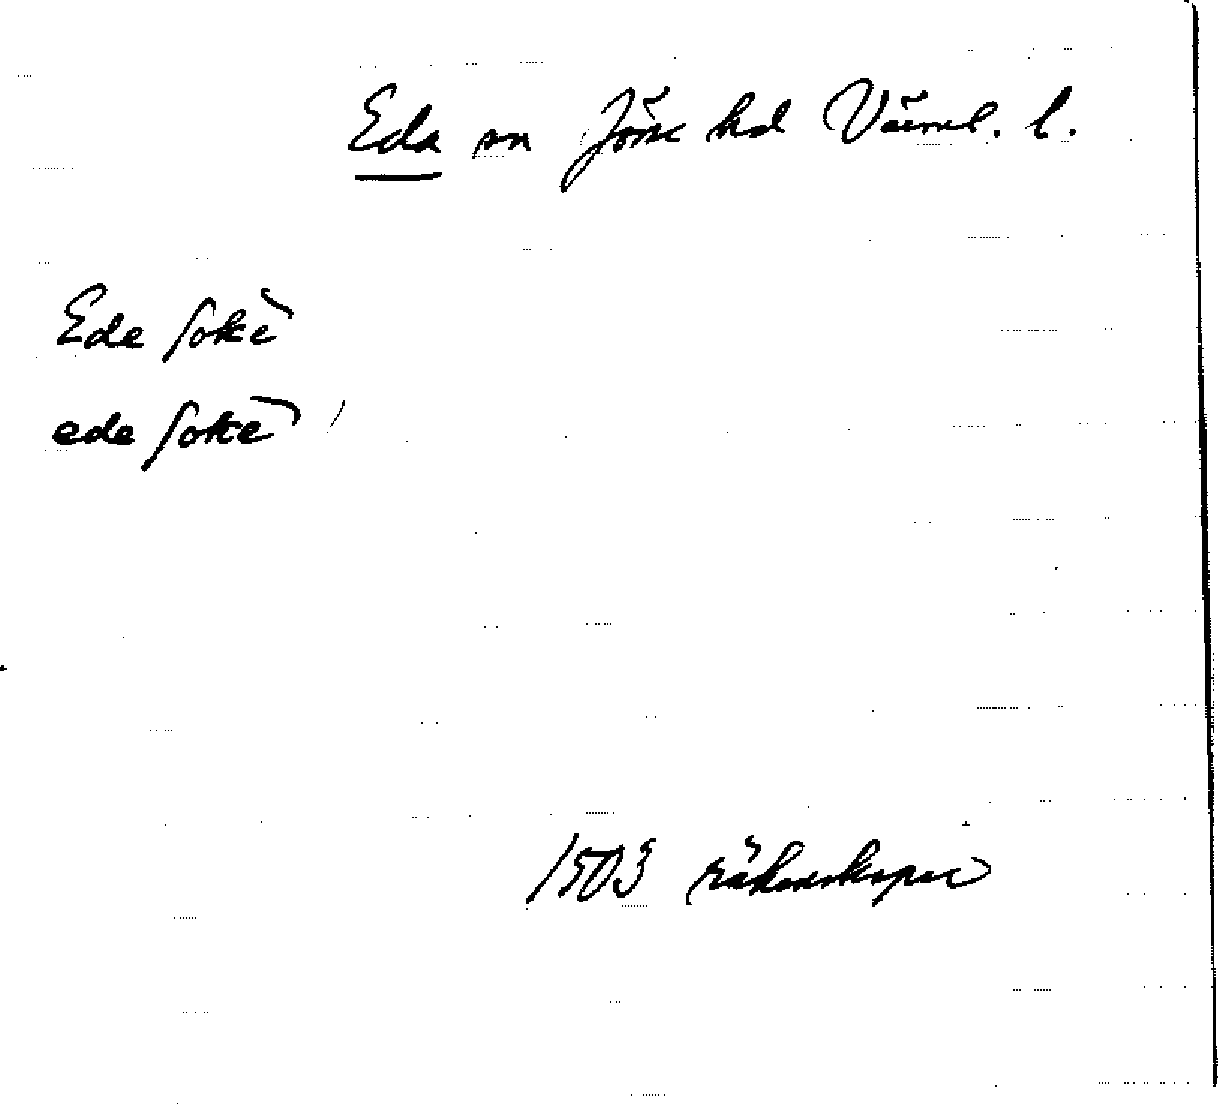 Eda sn Jösse hd Värml. l.
Ede sokē
ede sokē
1503 räkenskaper